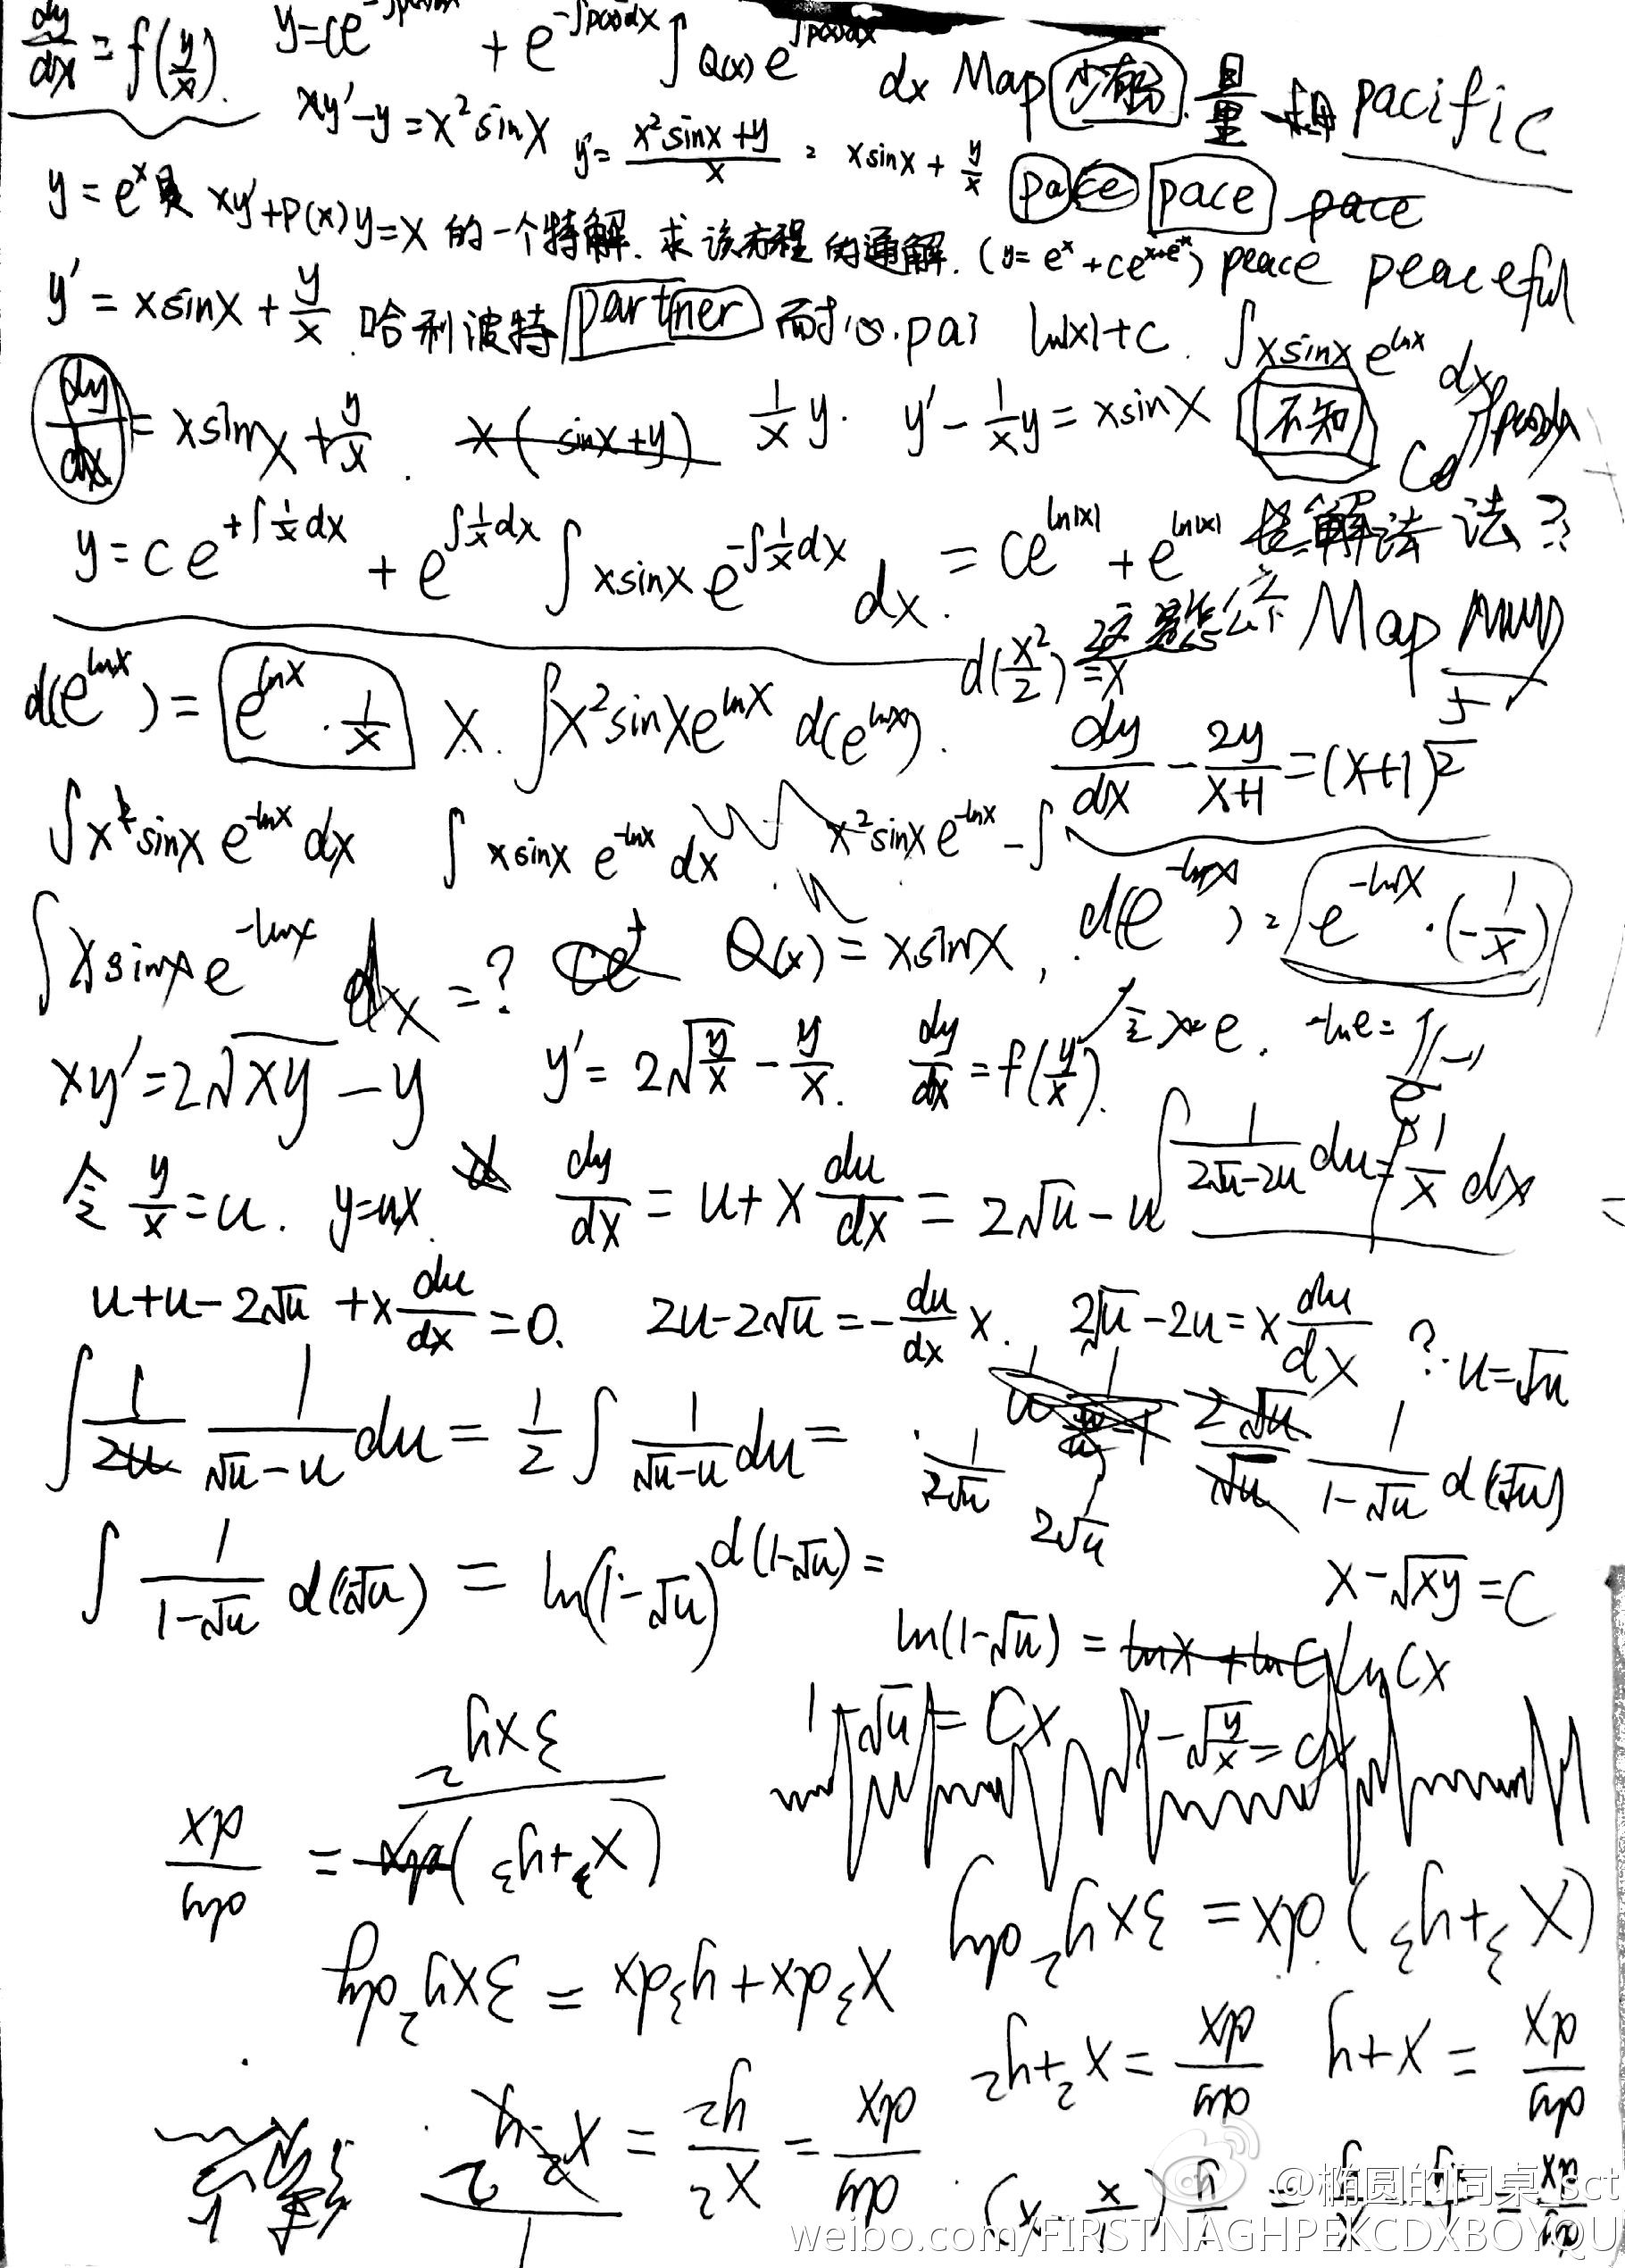 dy/dx = f(y/x). y=ce^{-∫p(x)dx} + e^{-∫p(x)dx} ∫Q(x)e^{∫p(x)dx} dx Map 量 pacific
xy'-y=x²sinx y'=(x²sinx+y)/x = xsinx+y/x pace pace pace
y=e^x是 xy'+P(x)y=x 的一个特解.求该方程的通解.(y=e^x+Ce^{x+e^{-x}}) peace peaceful
y'=xsinx+y/x 哈利波特 partner 耐心.pai ln|x|+c. ∫xsinx e^{lnx} dx
dy/dx=xsinx+y/x. x(sinx+y) 1/x y. y'-1/x y=xsinx 不知 Ce^{∫p(x)dx}
y=ce^{+∫1/x dx}+e^{∫1/x dx}∫xsinx e^{-∫1/x dx} dx. =Ce^{ln|x|}+e^{ln|x|} 解法 法?
d(x²/2)=x 这是怎么个 Map
d(e^{lnx})=e^{lnx}·1/x x. ∫x²sinxe^{lnx} d(e^{lnx}). dy/dx-2y/(x+1)=(x+1)^{5/2}
∫x²sinx e^{-lnx}dx ∫xsinx e^{-lnx}dx x²sinxe^{-lnx}-∫
∫xsinxe^{-lnx} dx=? Q(x)=xsinx, d(e^{-lnx})=e^{-lnx}·(-1/x)
xy'=2√xy-y y'=2√(y/x)-y/x. dy/dx=f(y/x). 令x=e. -lne=
令y/x=u. y=ux. dy/dx=u+x du/dx=2√u-u ∫1/(2√u-2u) du=∫1/x dx
u+u-2√u+x du/dx=0. 2u-2√u=-du/dx x. 2√u-2u=x du/dx ? u=√u
∫1/2u 1/(√u-u) du=1/2∫1/(√u-u) du= 1/2√u 2√u 2√u/√u 1/(1-√u) d(√u)
∫1/(1-√u) d(√u)=ln(1-√u)^{d(1-√u)}= x-√xy=C
ln(1-√u)=lnx+lnC lnCx
1-√u=Cx 1-√(y/x)=Cx
dy/dx = (x³+y³)/3xy²
(x³+y³)dx=3xy²dy
x³dx+y³dx=3xy²dy
dy/dx=x+y dy/dx=x²+y²
@椭圆的同桌_sct
weibo.com/FIRSTNAGHPEKCDXBOYQU